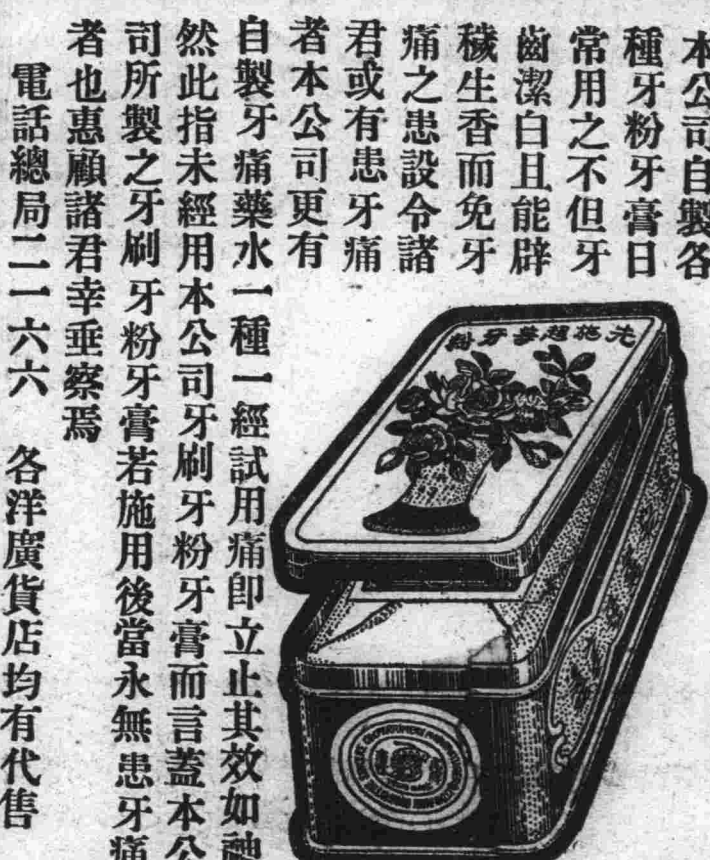 本公司自製各
種牙粉牙膏日
常用之不但牙
齒潔白且能辟
穢生香而免牙
痛之患設令諸
君或有患牙痛
者本公司更有
自製牙痛藥水一種一經試用痛卽立止其效如神
然此指未經用本公司牙刷牙粉牙膏而言蓋本公
司所製之牙刷牙粉牙膏若施用後當永無患牙痛
者也惠顧諸君幸垂察焉
電話總局二一六六 各洋廣貨店均有代售
先施超等牙粉